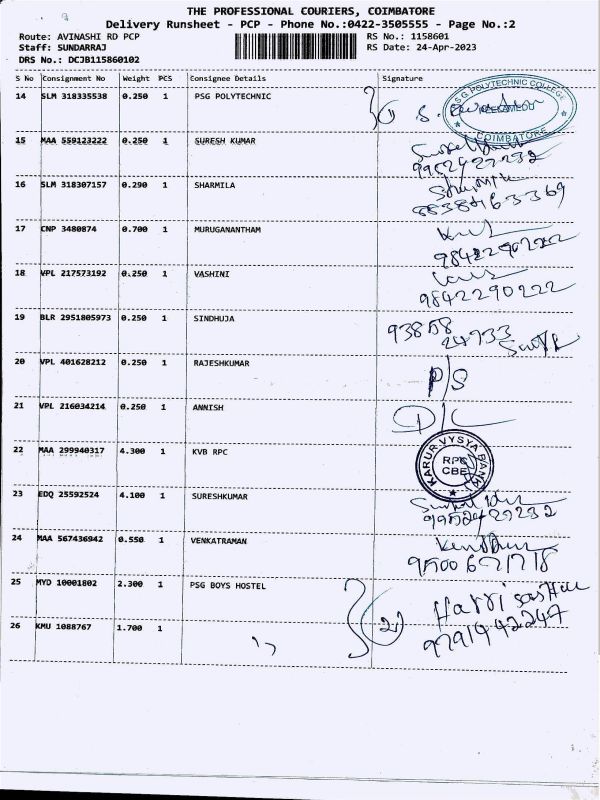 THE PROFESSIONAL COURIERS, COIMBATORE
Delivery Runsheet - PCP - Phone No.:0422-3505555 - Page No.:2
Route: AVINASHI RD PCP RS No.: 1158601
Staff: SUNDARRAJ RS Date: 24-Apr-2023
DRS No.: DCJB115860102
S No Consignment No Weight PCS Consignee Details Signature
14 SLM 318335538 0.250 1 PSG POLYTECHNIC
PSG POLYTECHNIC COLLEGE
COIMBATORE
15 MAA 559123222 0.250 1 SURESH KUMAR
9952427232
16 SLM 318307157 0.290 1 SHARMILA
8838463369
17 CNP 3480874 0.700 1 MURUGANANTHAM
9842290222
18 VPL 217573192 0.250 1 VASHINI
9842290222
19 BLR 2951805973 0.250 1 SINDHUJA
93858
24733
20 VPL 401628212 0.250 1 RAJESHKUMAR P/S
21 VPL 216034214 0.250 1 ANNISH
22 MAA 299940317 4.300 1 KVB RPC
KARUR VYSYA BANK
RPC
CBE
23 EDQ 25592524 4.100 1 SURESHKUMAR
9952427232
24 MAA 567436942 0.550 1 VENKATRAMAN
25 MYD 10001802 2.300 1 PSG BOYS HOSTEL
26 KMU 1088767 1.700 1
9791442247